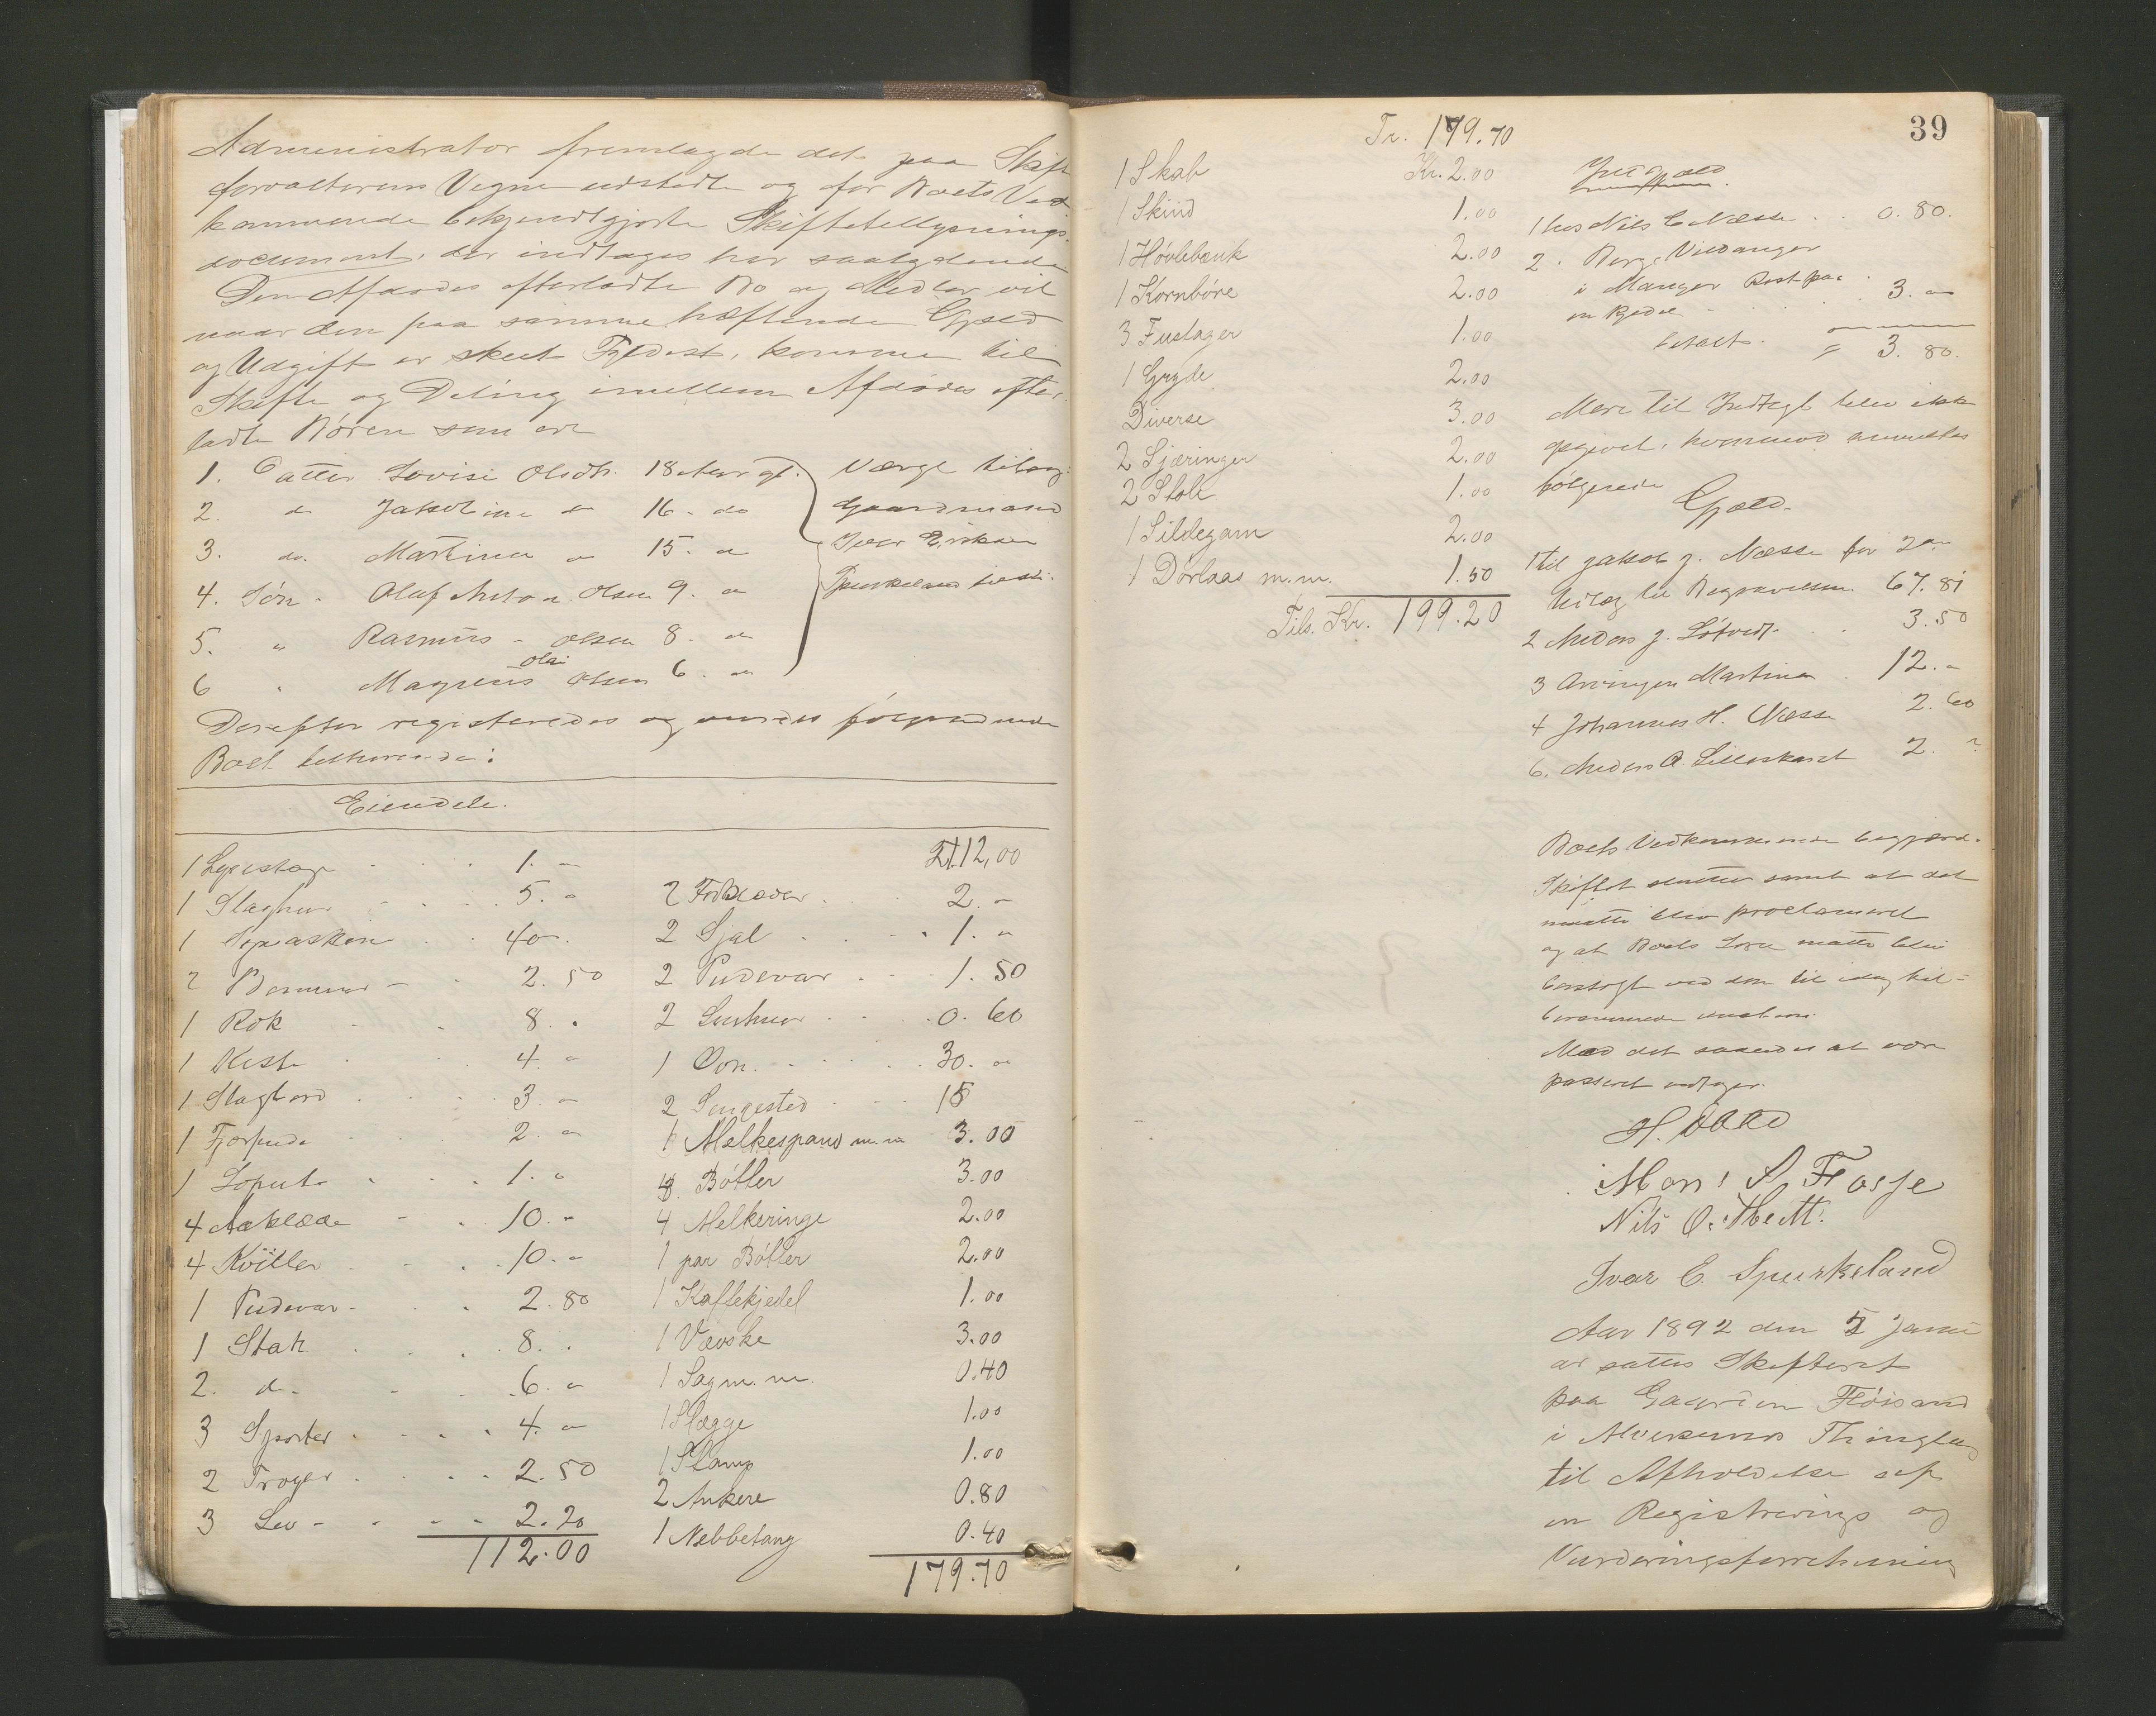 Administrator fremlagde det paa Skift
forvalterens Vegne udstedte og for Boets Ved
kommende bekjendtgjorte Skiftetillysnings-
document, der indtages her saalydende
Den Afdødes efterladte Bo og Midler vil
naar den paa samme heftende Gjæld
og Udgift er skeet Fyldest, komme til
Skifte og Deling imellem Afdødes efter-
ladte Børn som ere
1. Datter Lovise Olsdtr. 18 Aar gl.
2. do Jakobine do 16. do
3. do. Martina do 15. do
4. Søn Olaf Anton Olsen 9. do
5. " Rasmus Olsen 8. do
6 " Magnus Olai Olsen 6. do
Værge
Gaardmand
Iver Eriksen
Spurkeland
Derefter registeredes og vurderedes følgende
Boet tilhørende:
Eiendele.
1 Lysestage 1. -
1 Slaghus 5. -
1 40.
2 2. 50
1 Rok 8. .
1 Kiste 4. -
1 Slagbord 3. -
1 Fjørpude 2. -
1 Loput 1. -
4 Aaklæde 10. -
4 Kviller 10. -
1 Pudevar 2. 80
1 Stak 8. .
2. do 6. -
3 4. -
2 Trøyer 2. 50
3 2. 20
112.00
Tr. 112,00
2 Forklæder 2. -
2 Sjal 1. -
2 Pudevar 1. 50
2 0. 60
1 Ovn 30. -
2 Sengested 15
1 Melkespand m.m 3. 00
8 Bøtter 3.00
4 Melkeringe 2.00
1 par Bøtter 2.00
1 Kaffekjedel 1.00
1 Vævske 3.00
1 Sag m. m. 0.40
1 Slægge 1.00
1 Stamp 1.00
2 Ankere 0.80
1 Nebbetang 0.40
179.70
39
Tr. 179.70
1 Skab Kr. 2.00
1 Skind 1.00
1 Høvlebænk 2.00
1 Kornbøre 2.00
3 Fustager 1.00
1 Gryde 2.00
Diverse 3.00
2 Sjæringer 2.00
2 Stole 1.00
1 Sildegarn 2.00
1 Dørlaas m.m. 1.50
Tils. Kr. 199.20
Indgjæld
1 hos Nils Næsse 0. 80.
2 . Børge Vildanger
i Manger Rest paa
en Kjedel 3. -
betalt 3. 80.
Mere til Indtægt blev ikke
opgivet, hvorimod anmeldtes
følgende
Gjæld.
1 til Jakob J. Næsse for
til Begravelsen 67. 81
2 Anders J. Løtvedt 3. 50
3 Arvingen Martina 12. -
4 Johannes H. Næsse 2. 60
6. Anders A. Lilleskaret 2.
Boets Vedkommende begjærede
Skiftet sluttet samt at det
maatte blive proclameret
og at Boets Løsøre maatte blive
bortsolgt ved den til idag til-
berammede auction.
Med det saaledes at være
passeret vedtager.
Mons A. Fosse
Nils O.
Ivar E. Spurkeland
Aar 1892 den 5 Janu
ar sattes Skifteret
paa Gaarden Fløisand
i Alversunds Thinglag
til Afholdelse af
en Registrerings og
Vurderingsforretning